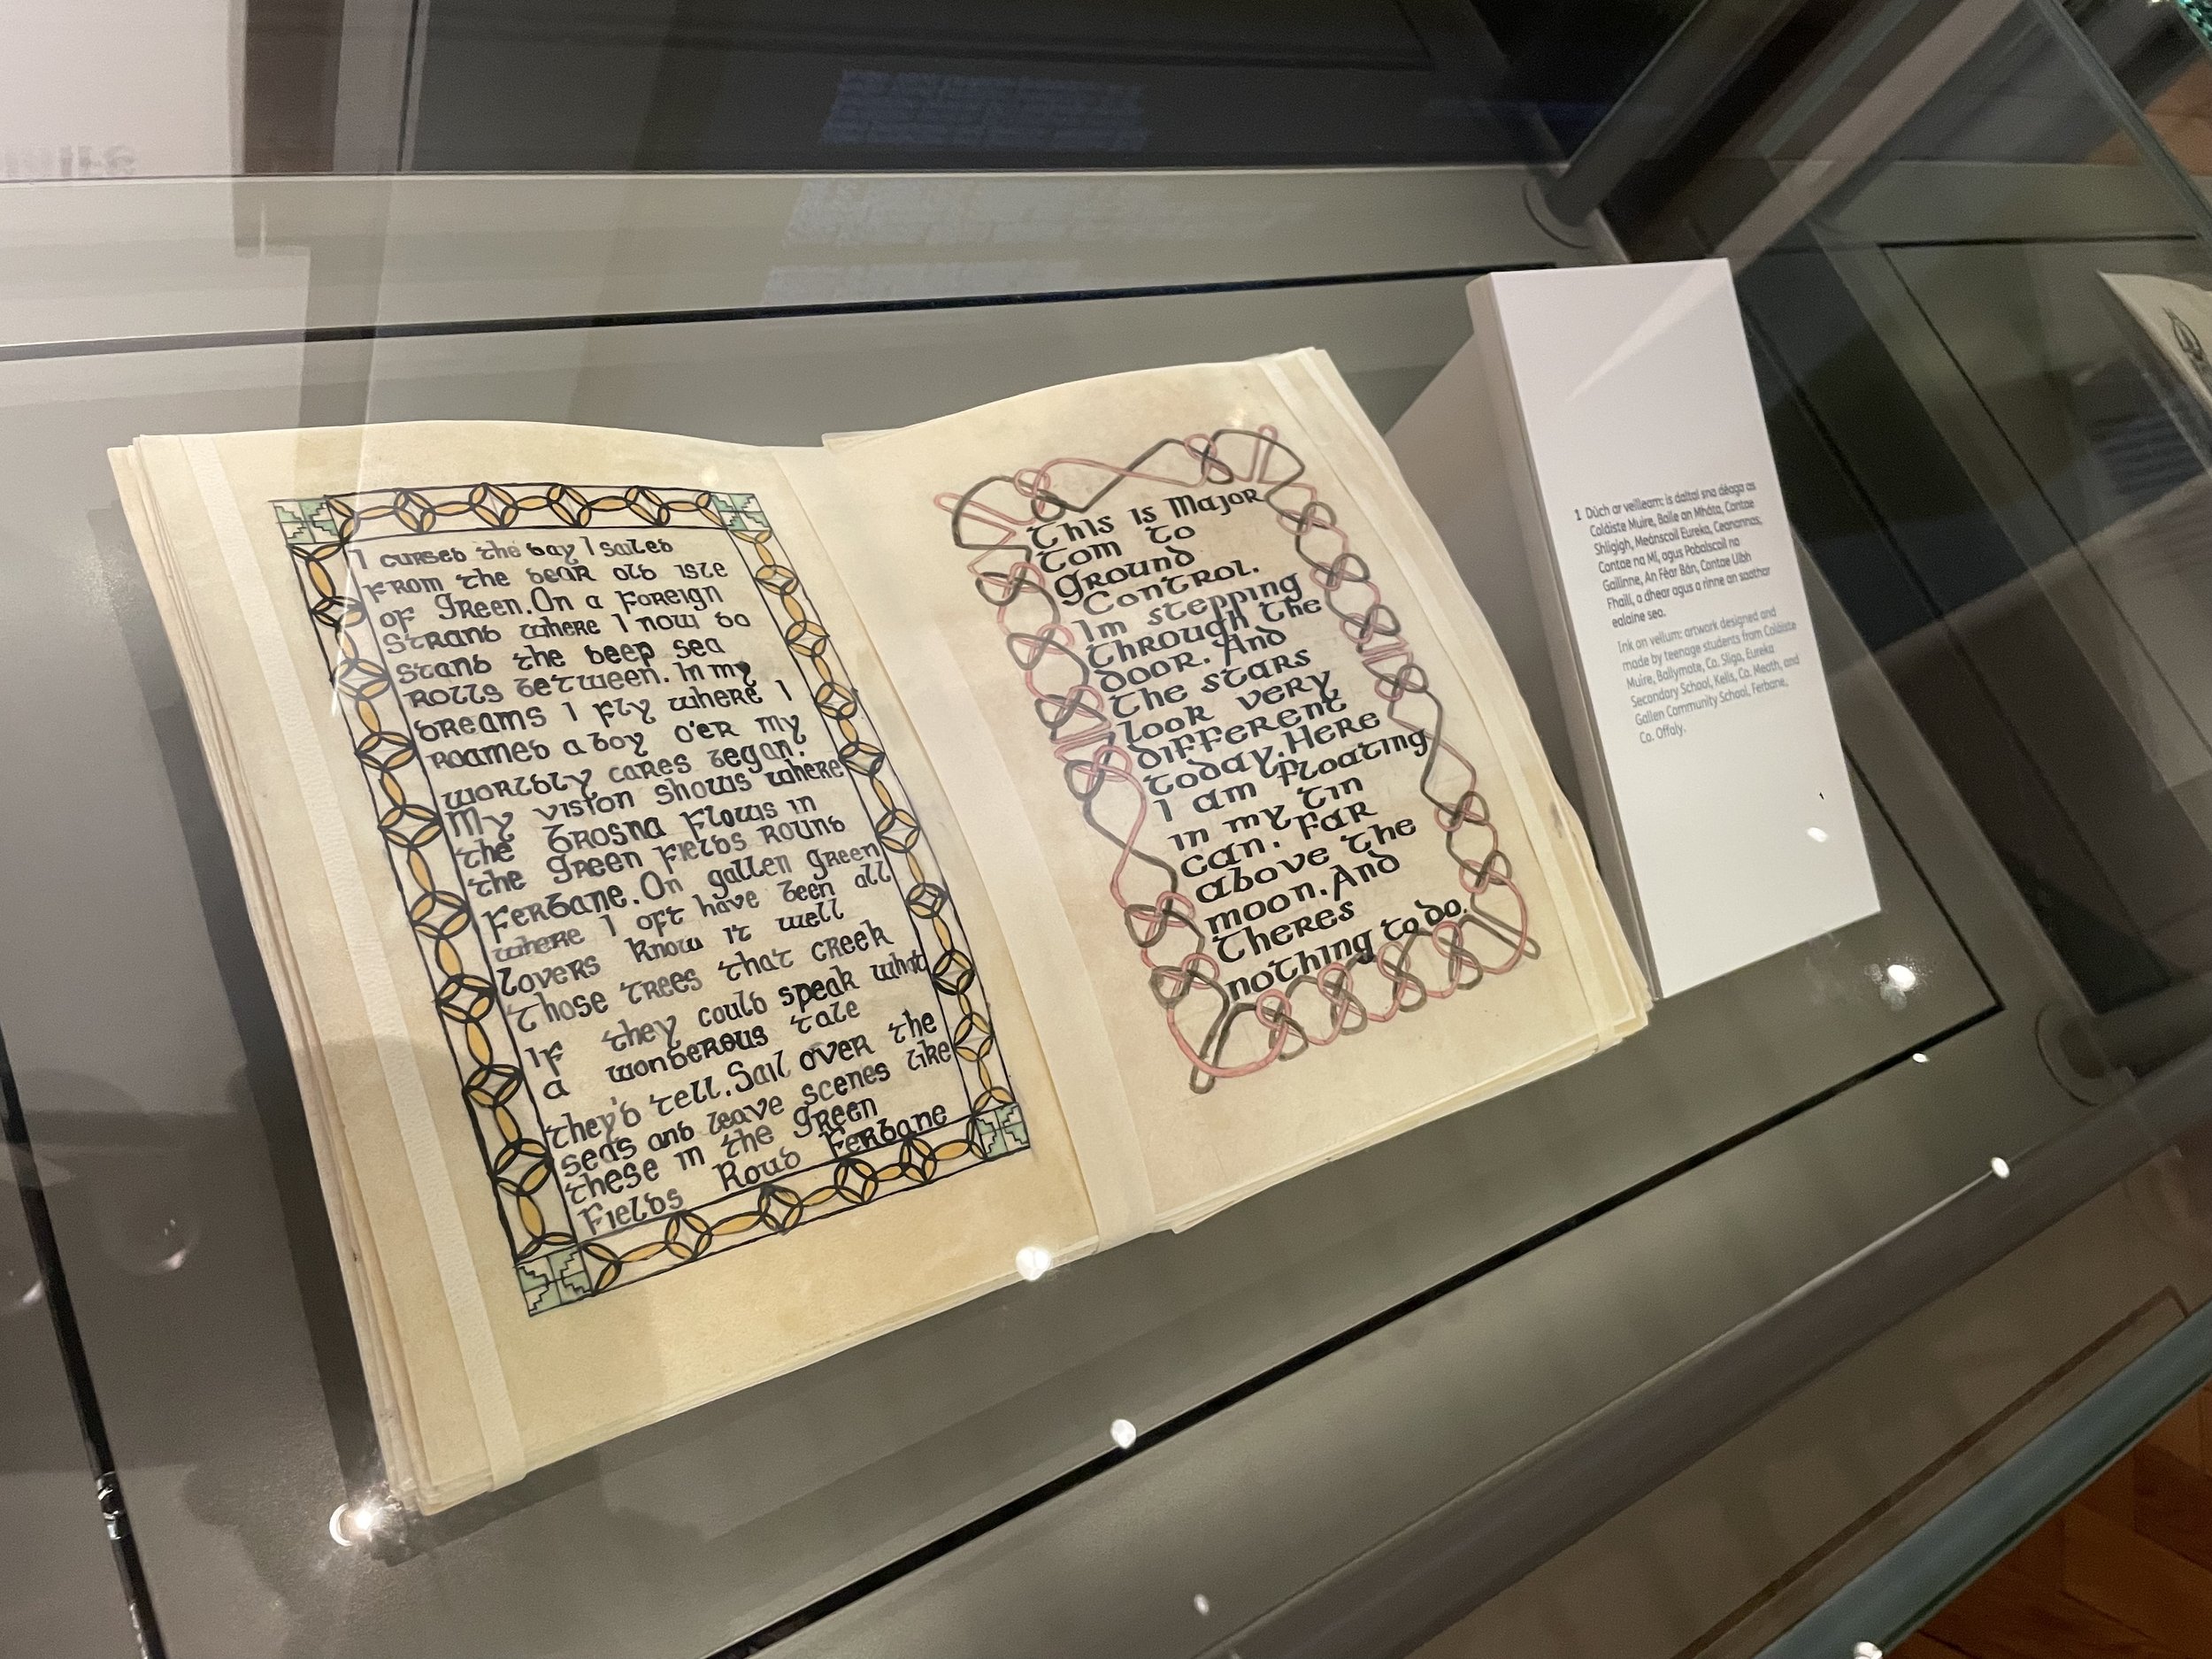 I cursed the day I sailed
from the dear old isle
of green. On a foreign
strand where I now do
stand the deep sea
rolls between. In my
dreams I fly where I
roamed a boy o'er my
worldly cares began.
My vision shows where
the Brosna flows in
the green fields round
Ferbane. On gallen green
where I oft have been all
lovers know it well
those trees that creek
If they could speak what
a wonderous tale
they'd tell. Sail over the
seas and leave scenes like
these in the green
fields Roud Ferbane
This is Major
Tom to
Ground
Control.
Im stepping
through the
door. And
the stars
look very
different
today. Here
I am floating
in my tin
can. Far
above the
moon. And
theres
nothing to do.
1 Dúch ar veilleam: is daltaí sna déaga as
Coláiste Muire, Baile an Mhóta, Contae
Shligigh, Meánscoil Eureka, Ceanannas,
Contae na Mí, agus Pobalscoil na
Gaillinne, An Féar Bán, Contae Uíbh
Fhailí, a dhear agus a rinne an saothar
ealaíne seo.
Ink on vellum: artwork designed and
made by teenage students from Coláiste
Muire, Ballymote, Co. Sligo, Eureka
Secondary School, Kells, Co. Meath, and
Gallen Community School, Ferbane,
Co. Offaly.